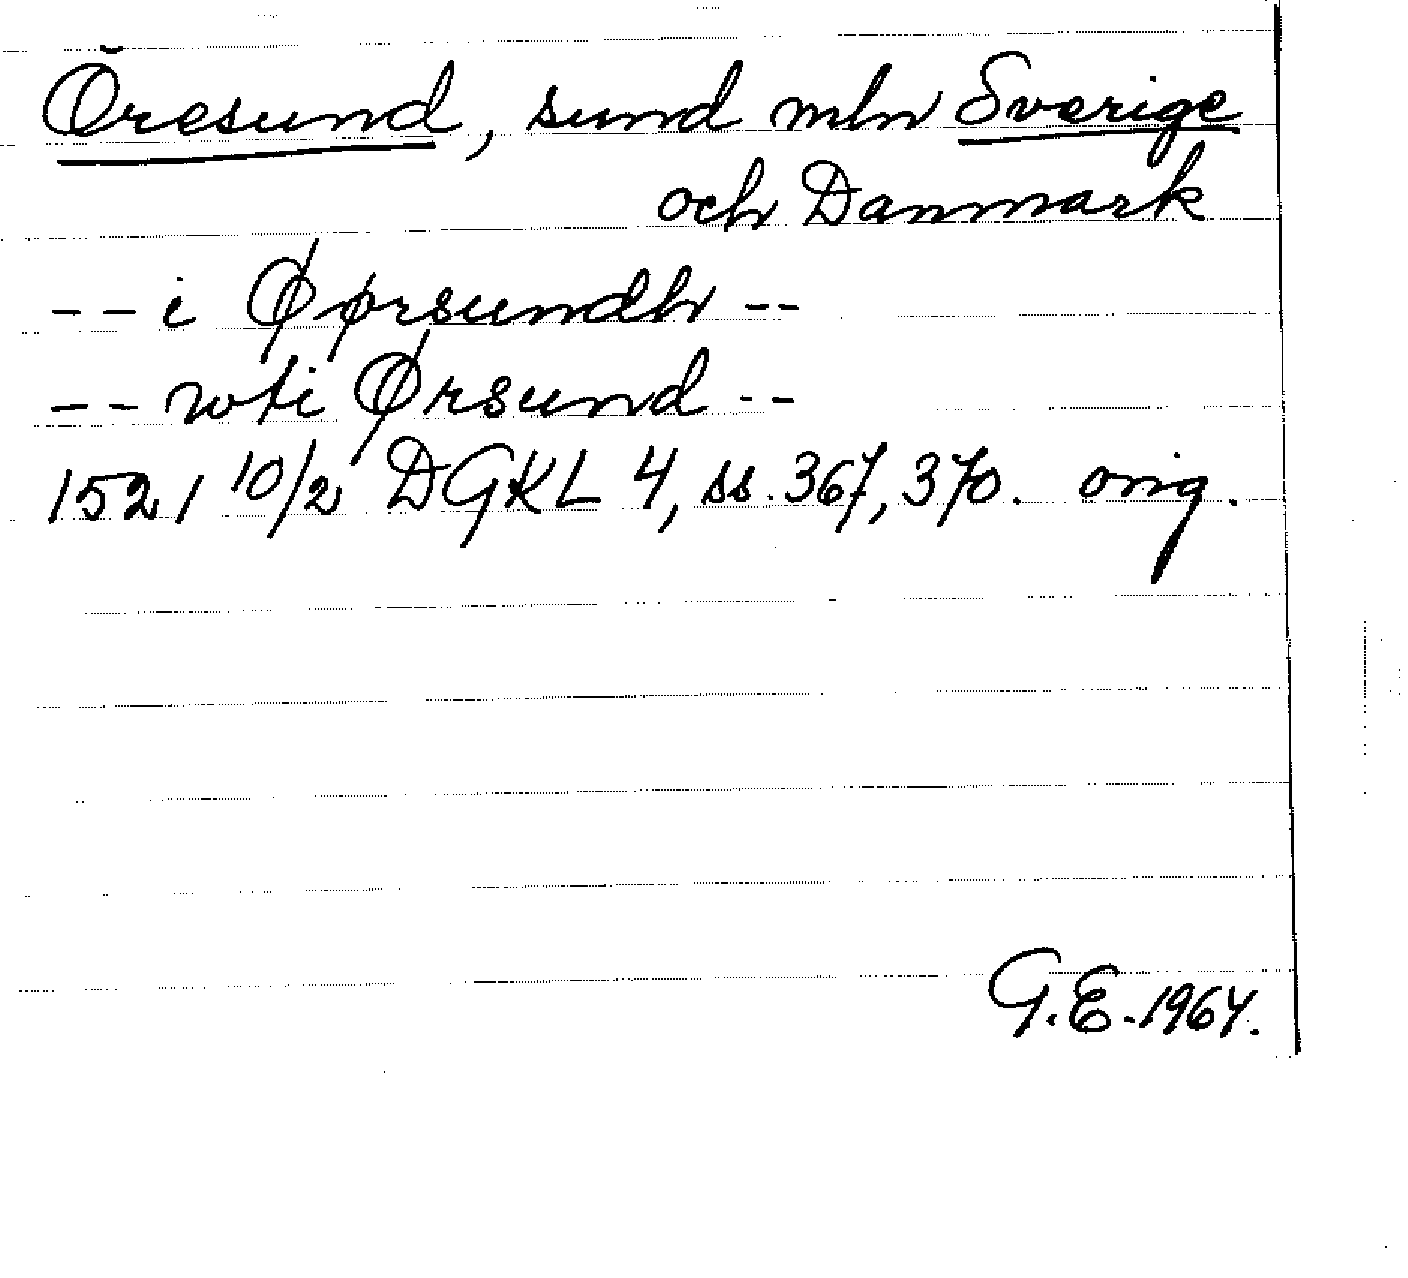 Öresund, sund mln Sverige
och Danmark
-- i Øørsundh --
-- wti Ørsund --
1521 10/2 DGKL 4, ss. 367, 370. orig.
G.E. 1964.